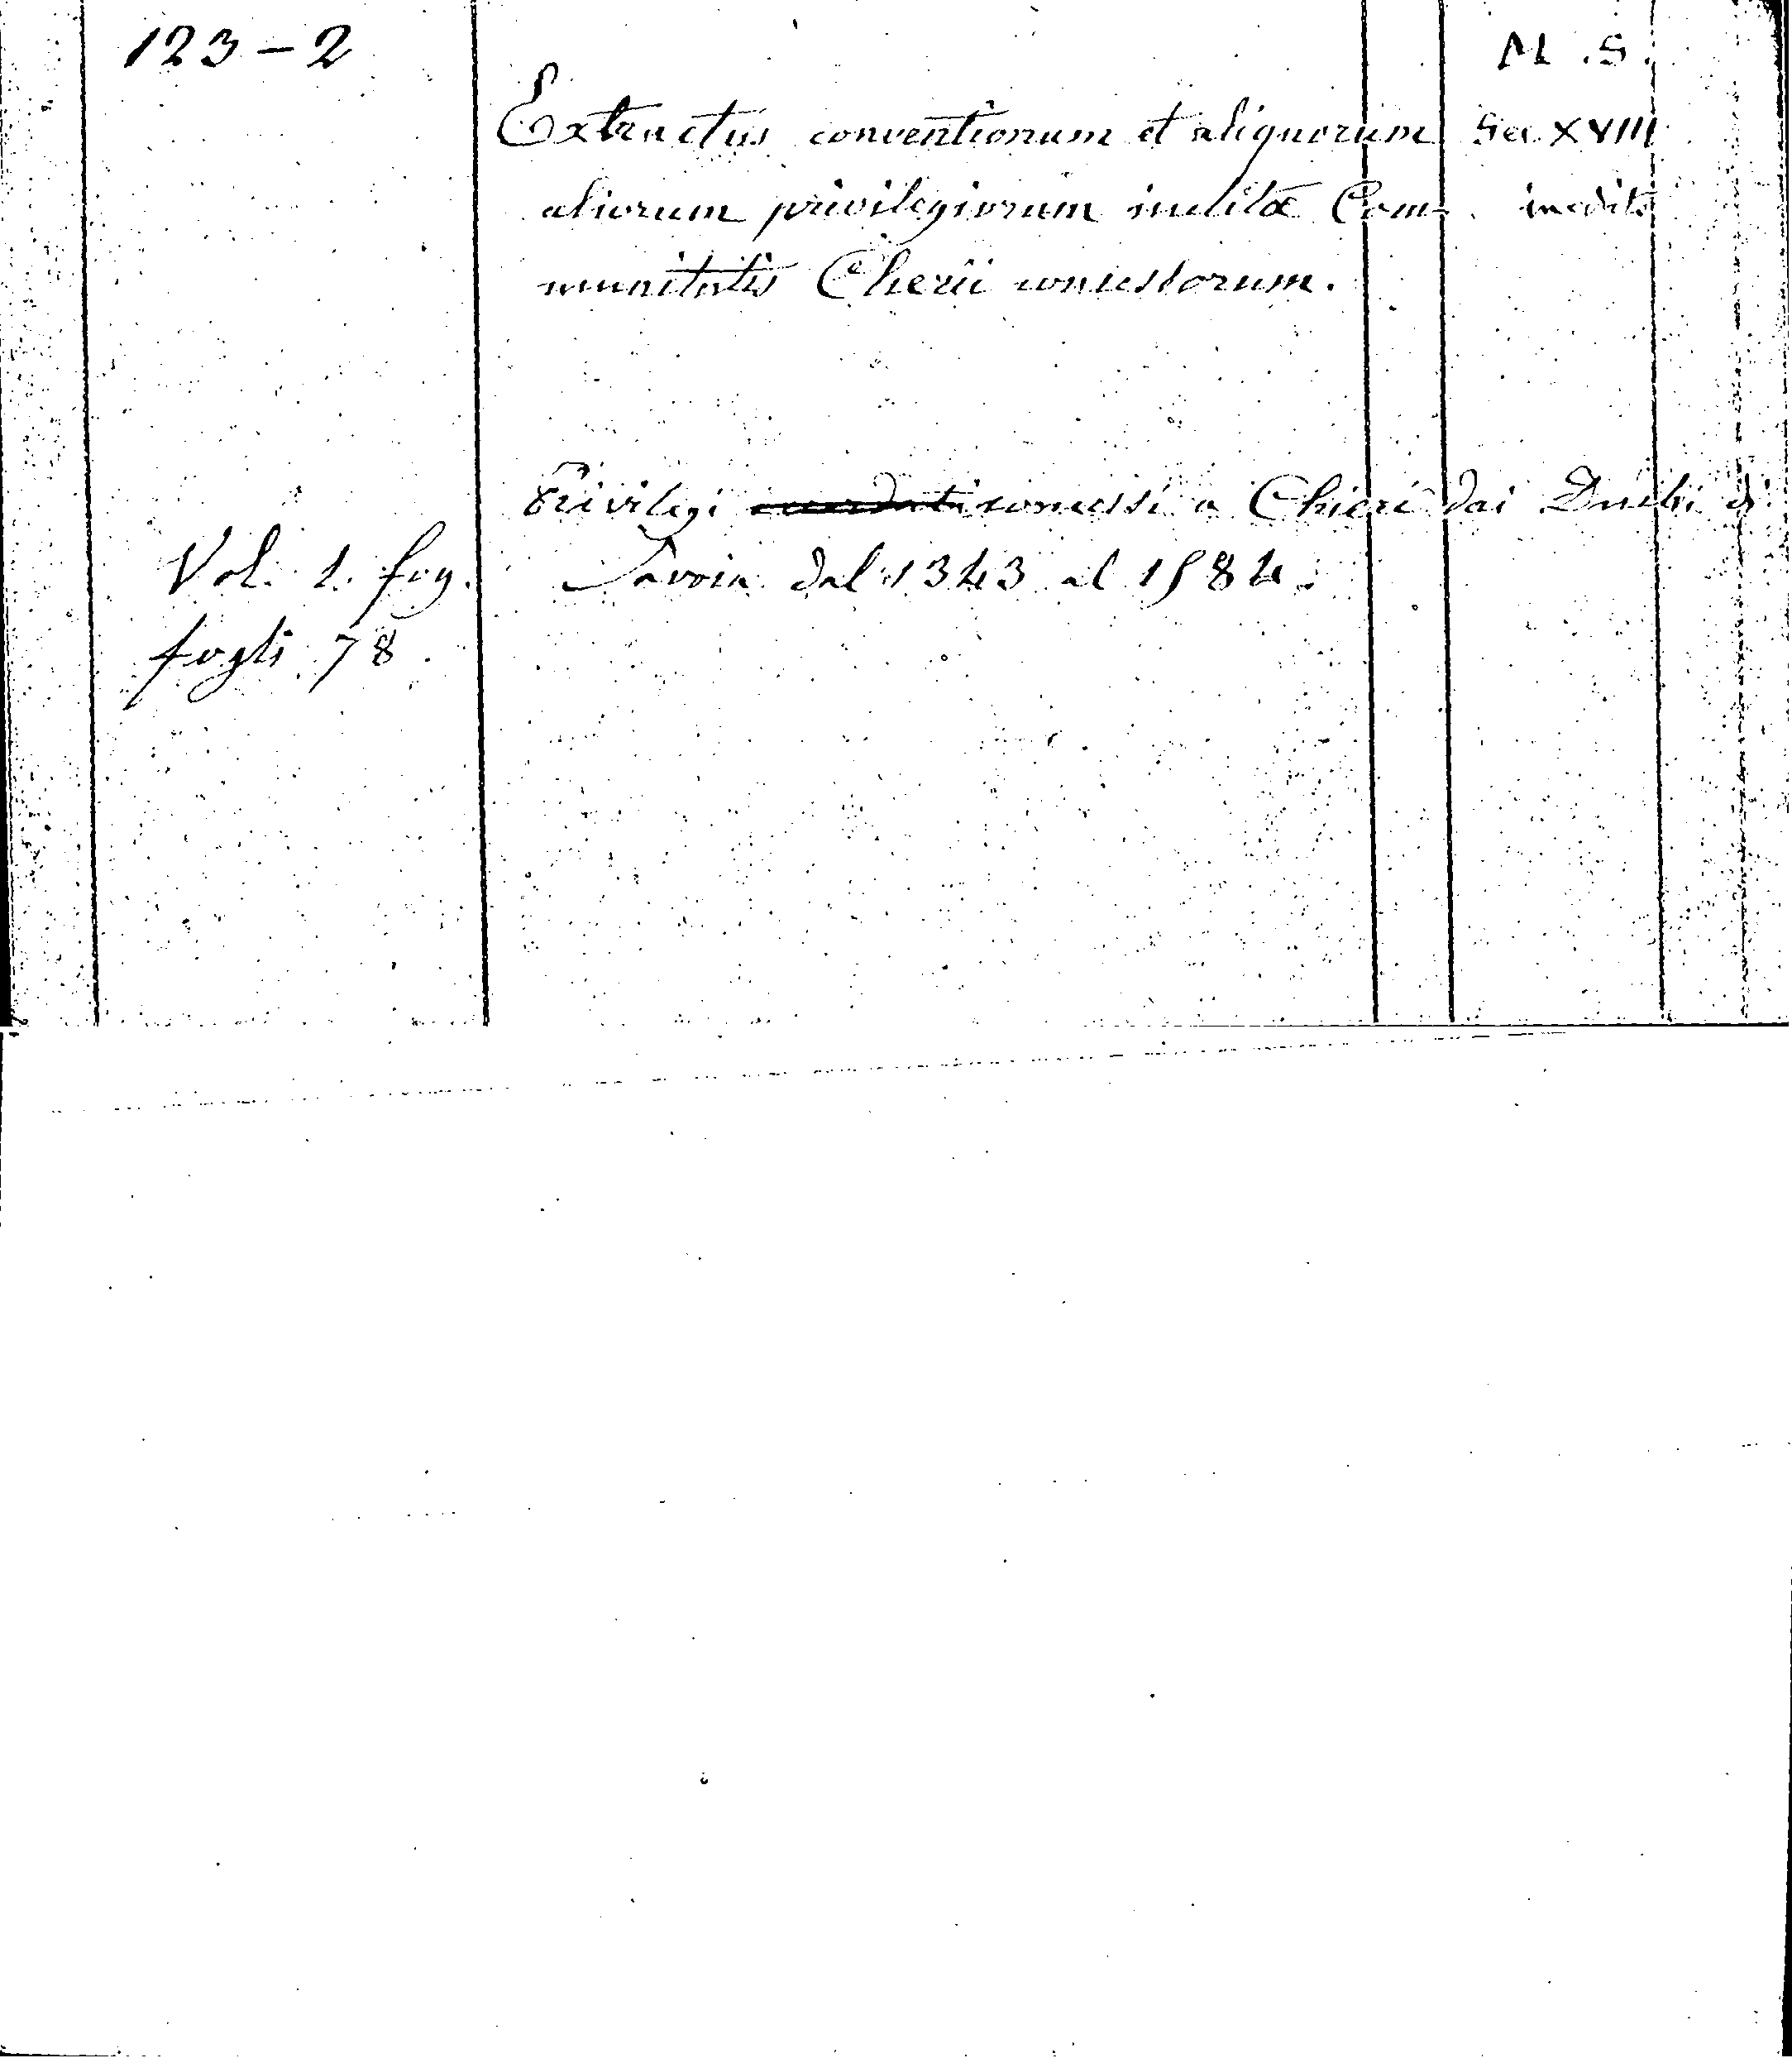 123-2
M.S.
Extractus conventionum et aliquorum Sec. XVIII
aliorum privilegiorum inclitæ Com- inedito
munitatis Cherii concessorum.
Privilegi accordati concessi a Chieri dai Duchi di
Vol. 1. fog. Savoia dal 1343 al 1584.
fogli 78.